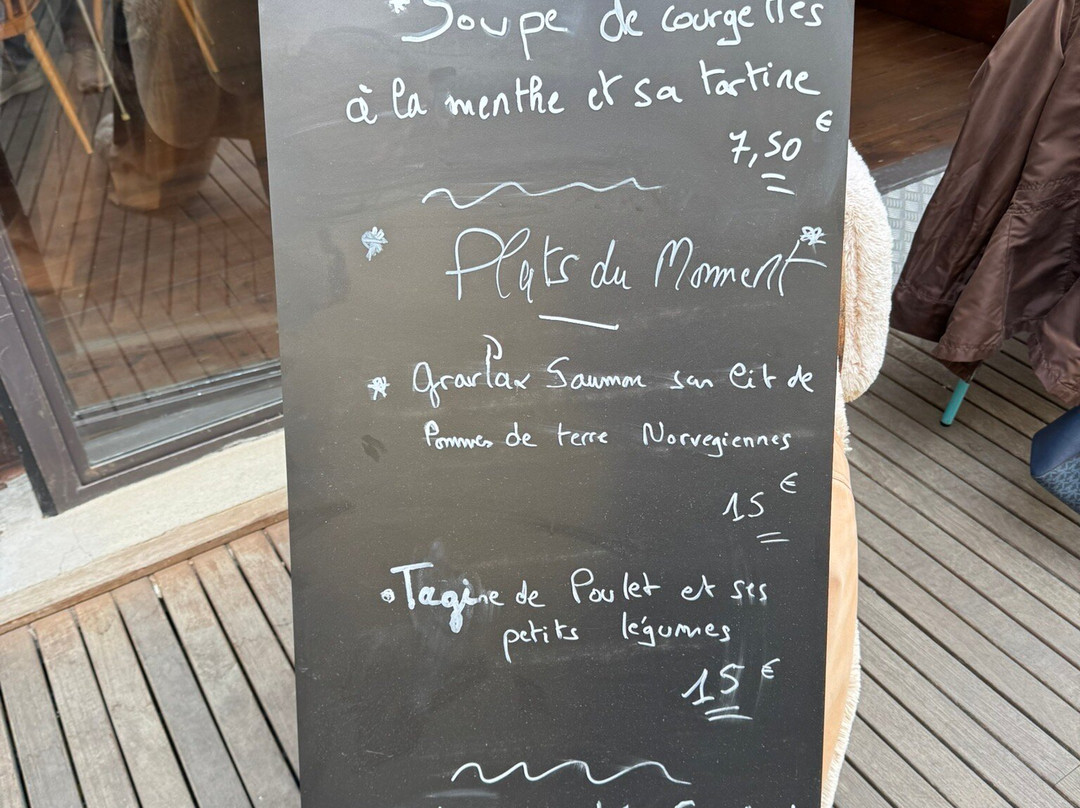 * Soupe de courgettes
à la menthe et sa tartine
7,50 €
* Plats du Moment *
* Gravlax Saumon son lit de
Pommes de terre Norvegiennes
15 €
• Tagine de Poulet et ses
petits légumes
15 €